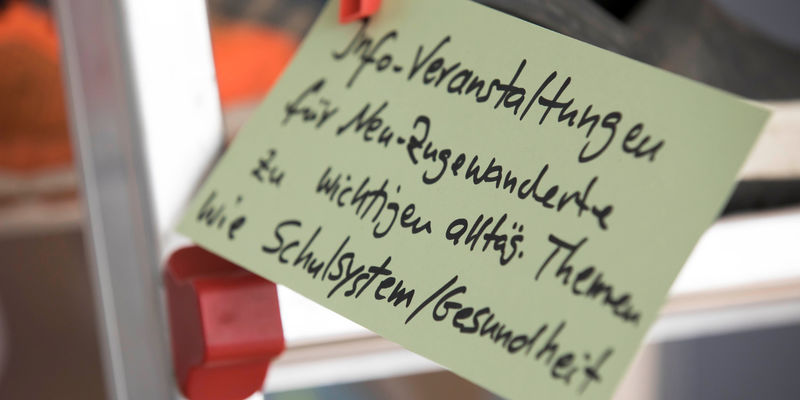 Info-Veranstaltungen
für Neu-Zugewanderte
zu wichtigen alltäg. Themen
wie Schulsystem/Gesundheit